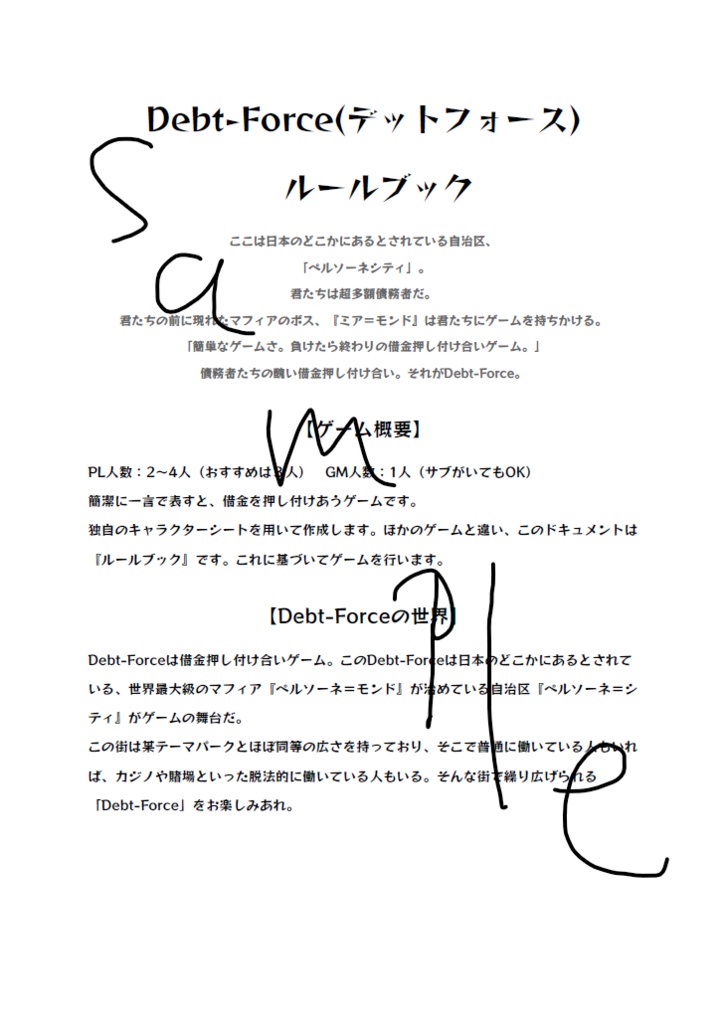 Debt-Force(デットフォース)
ルールブック
ここは日本のどこかにあるとされている自治区、
「ペルソーネシティ」。
君たちは超多額債務者だ。
君たちの前に現れたマフィアのボス、『ミア＝モンド』は君たちにゲームを持ちかける。
「簡単なゲームさ。負けたら終わりの借金押し付け合いゲーム。」
債務者たちの醜い借金押し付け合い。それがDebt-Force。
【ゲーム概要】
PL人数：2～4人（おすすめは3人）　GM人数：1人（サブがいてもOK）
簡潔に一言で表すと、借金を押し付けあうゲームです。
独自のキャラクターシートを用いて作成します。ほかのゲームと違い、このドキュメントは
『ルールブック』です。これに基づいてゲームを行います。
【Debt-Forceの世界】
Debt-Forceは借金押し付け合いゲーム。このDebt-Forceは日本のどこかにあるとされて
いる、世界最大級のマフィア『ペルソーネ＝モンド』が治めている自治区『ペルソーネ＝シ
ティ』がゲームの舞台だ。
この街は某テーマパークとほぼ同等の広さを持っており、そこで普通に働いている人もいれ
ば、カジノや賭場といった脱法的に働いている人もいる。そんな街で繰り広げられる
「Debt-Force」をお楽しみあれ。
Sample